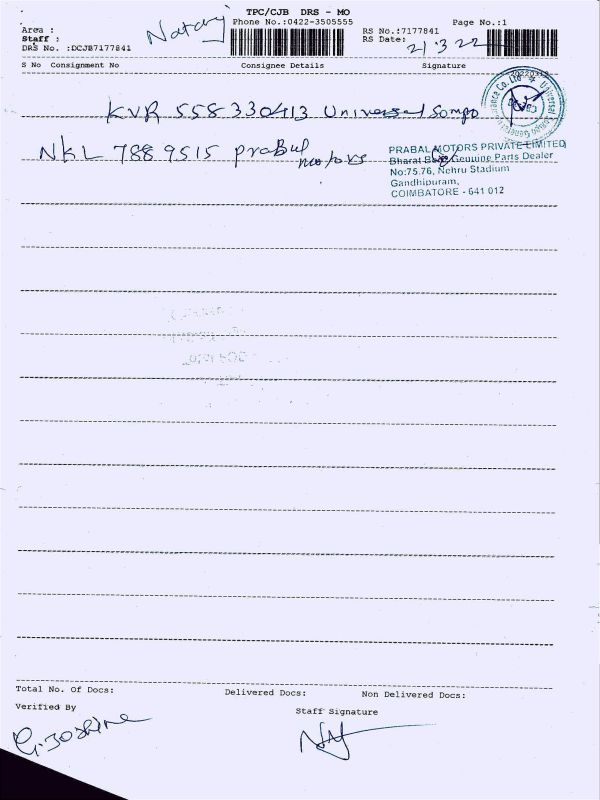 TPC/CJB DRS - MO
Nataraj
Phone No.:0422-3505555
Page No.:1
Area :
Staff :
DRS No. :DCJB7177841
RS No.:7177841
RS Date: 21.3.22
S No Consignment No Consignee Details Signature
KVR 558330413 Universal Sompo
NKL 7889515 prabul motors
PRABAL MOTORS PRIVATE LIMITED
Bharat Benz Genuine Parts Dealer
No:75.76, Nehru Stadium
Gandhipuram,
COIMBATORE - 641 012
Total No. Of Docs: Delivered Docs: Non Delivered Docs:
Verified By
Staff Signature
G. Joshine